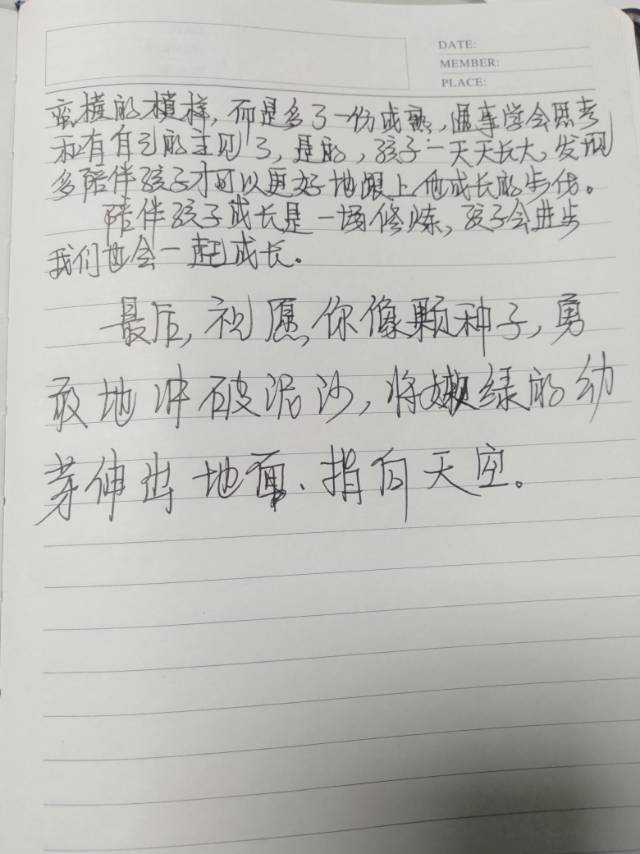 DATE:
MEMBER:
PLACE:
蛮横的模样，而是多了一份成熟，遇事学会思考
和有自己的主见了，是的，孩子一天天长大，发现
多陪伴孩子才可以更好地跟上他成长的步伐。
陪伴孩子成长是一场修炼，孩子会进步
我们也会一起成长。
最后，祝愿，你像颗种子，勇
敢地冲破泥沙，将嫩绿的幼
芽伸出地面、指向天空。